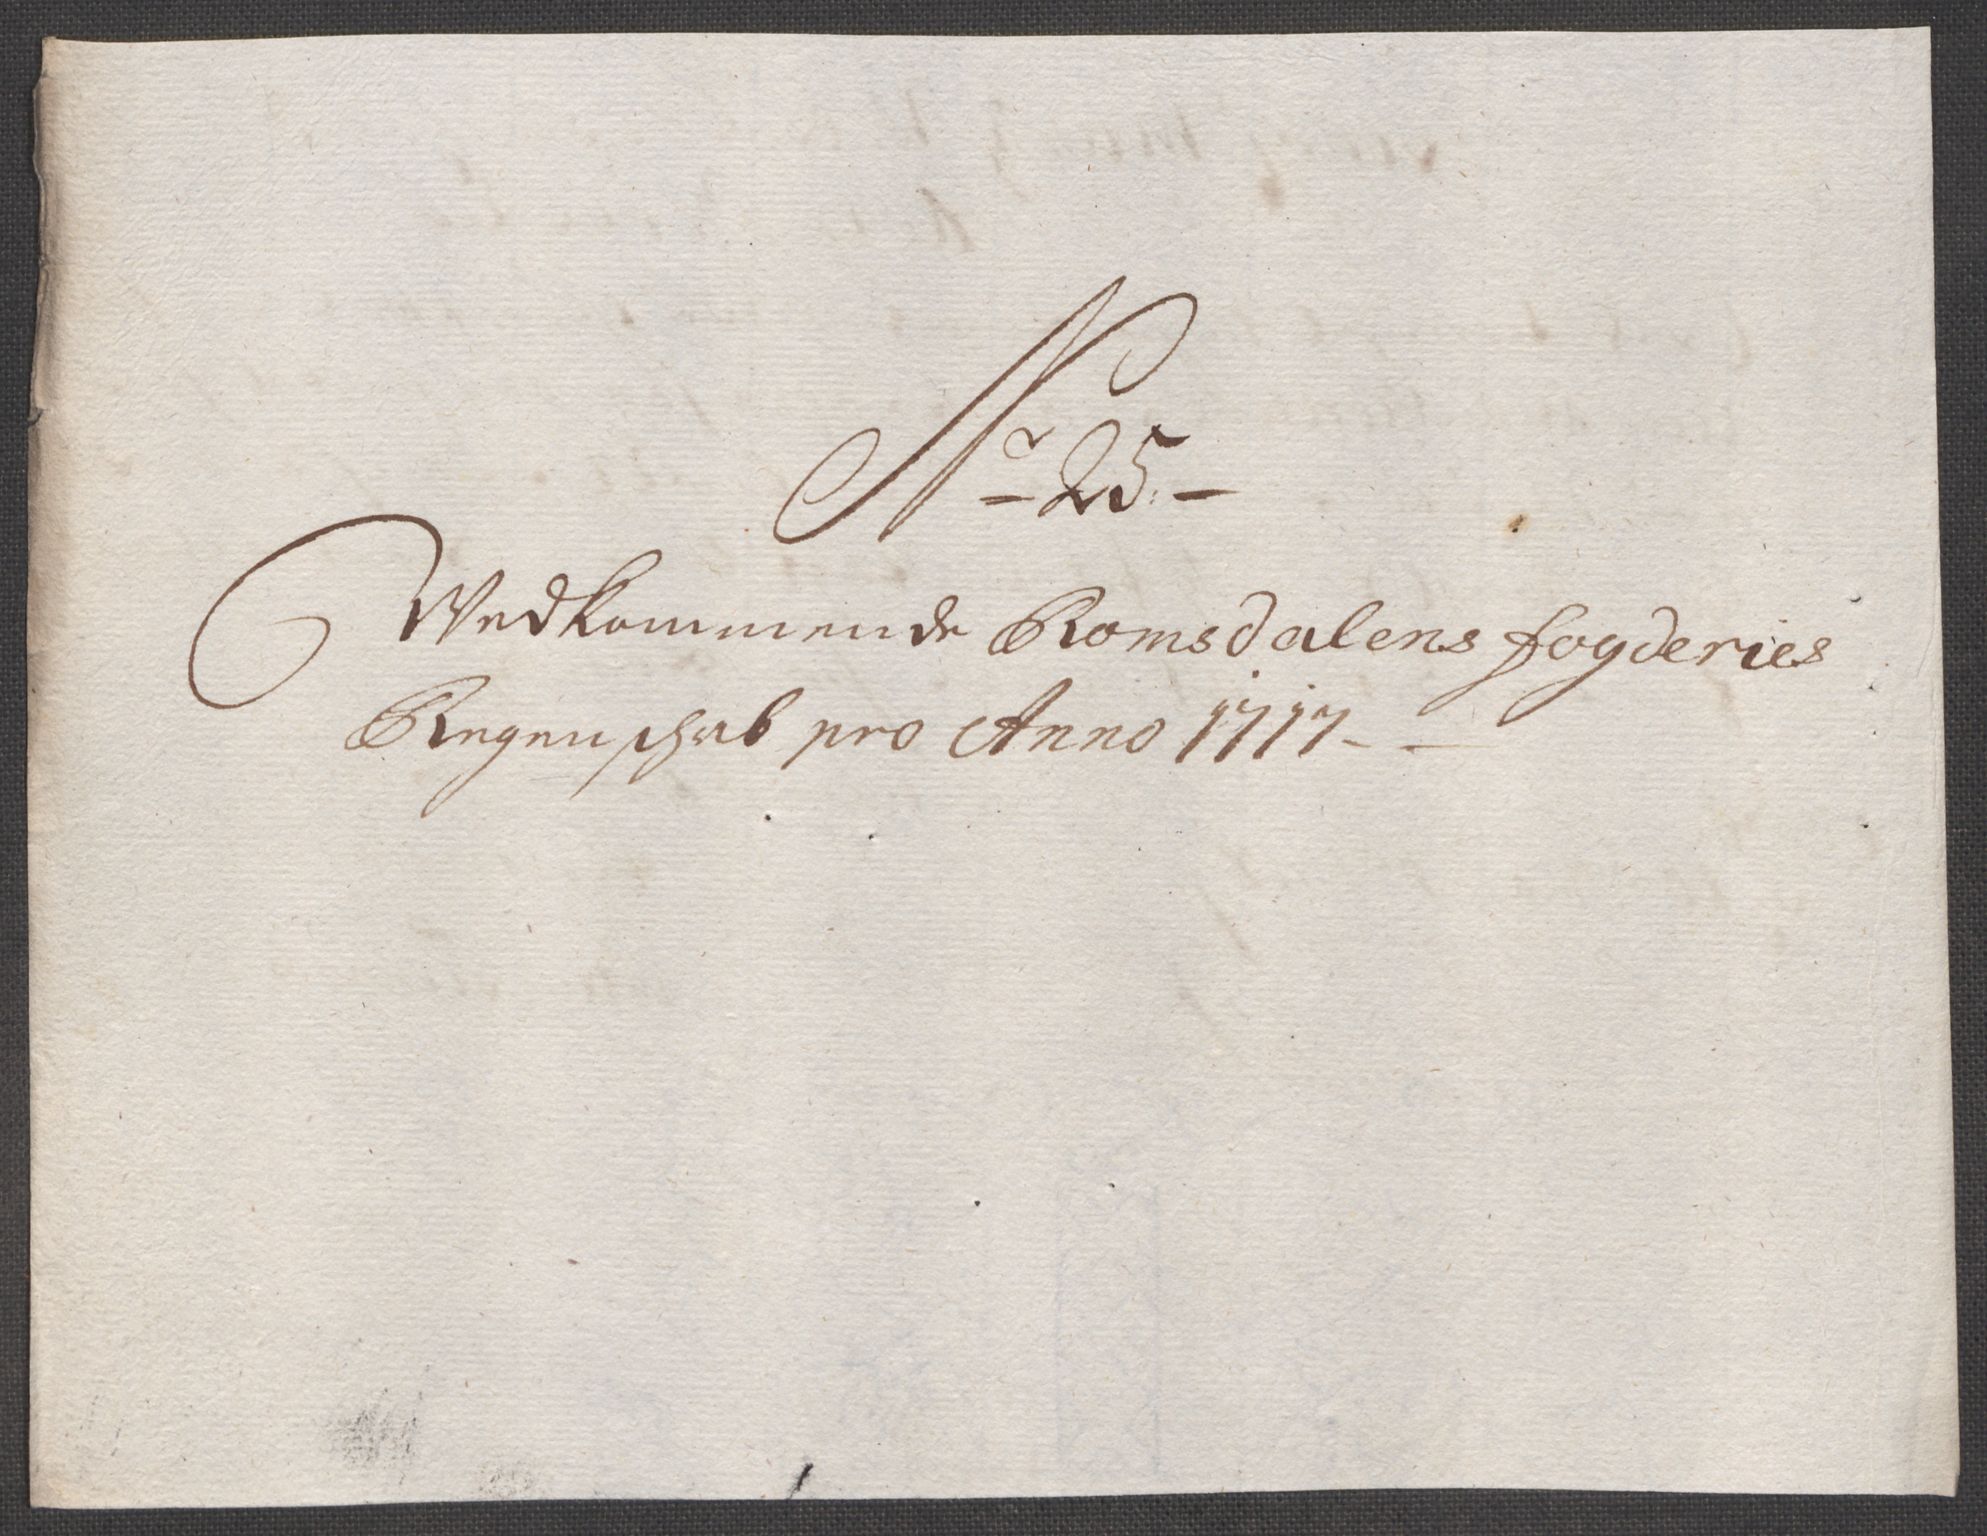 No 25.
Wedkommende Romsdalens fogderies
Regenschab pro Anno 1717